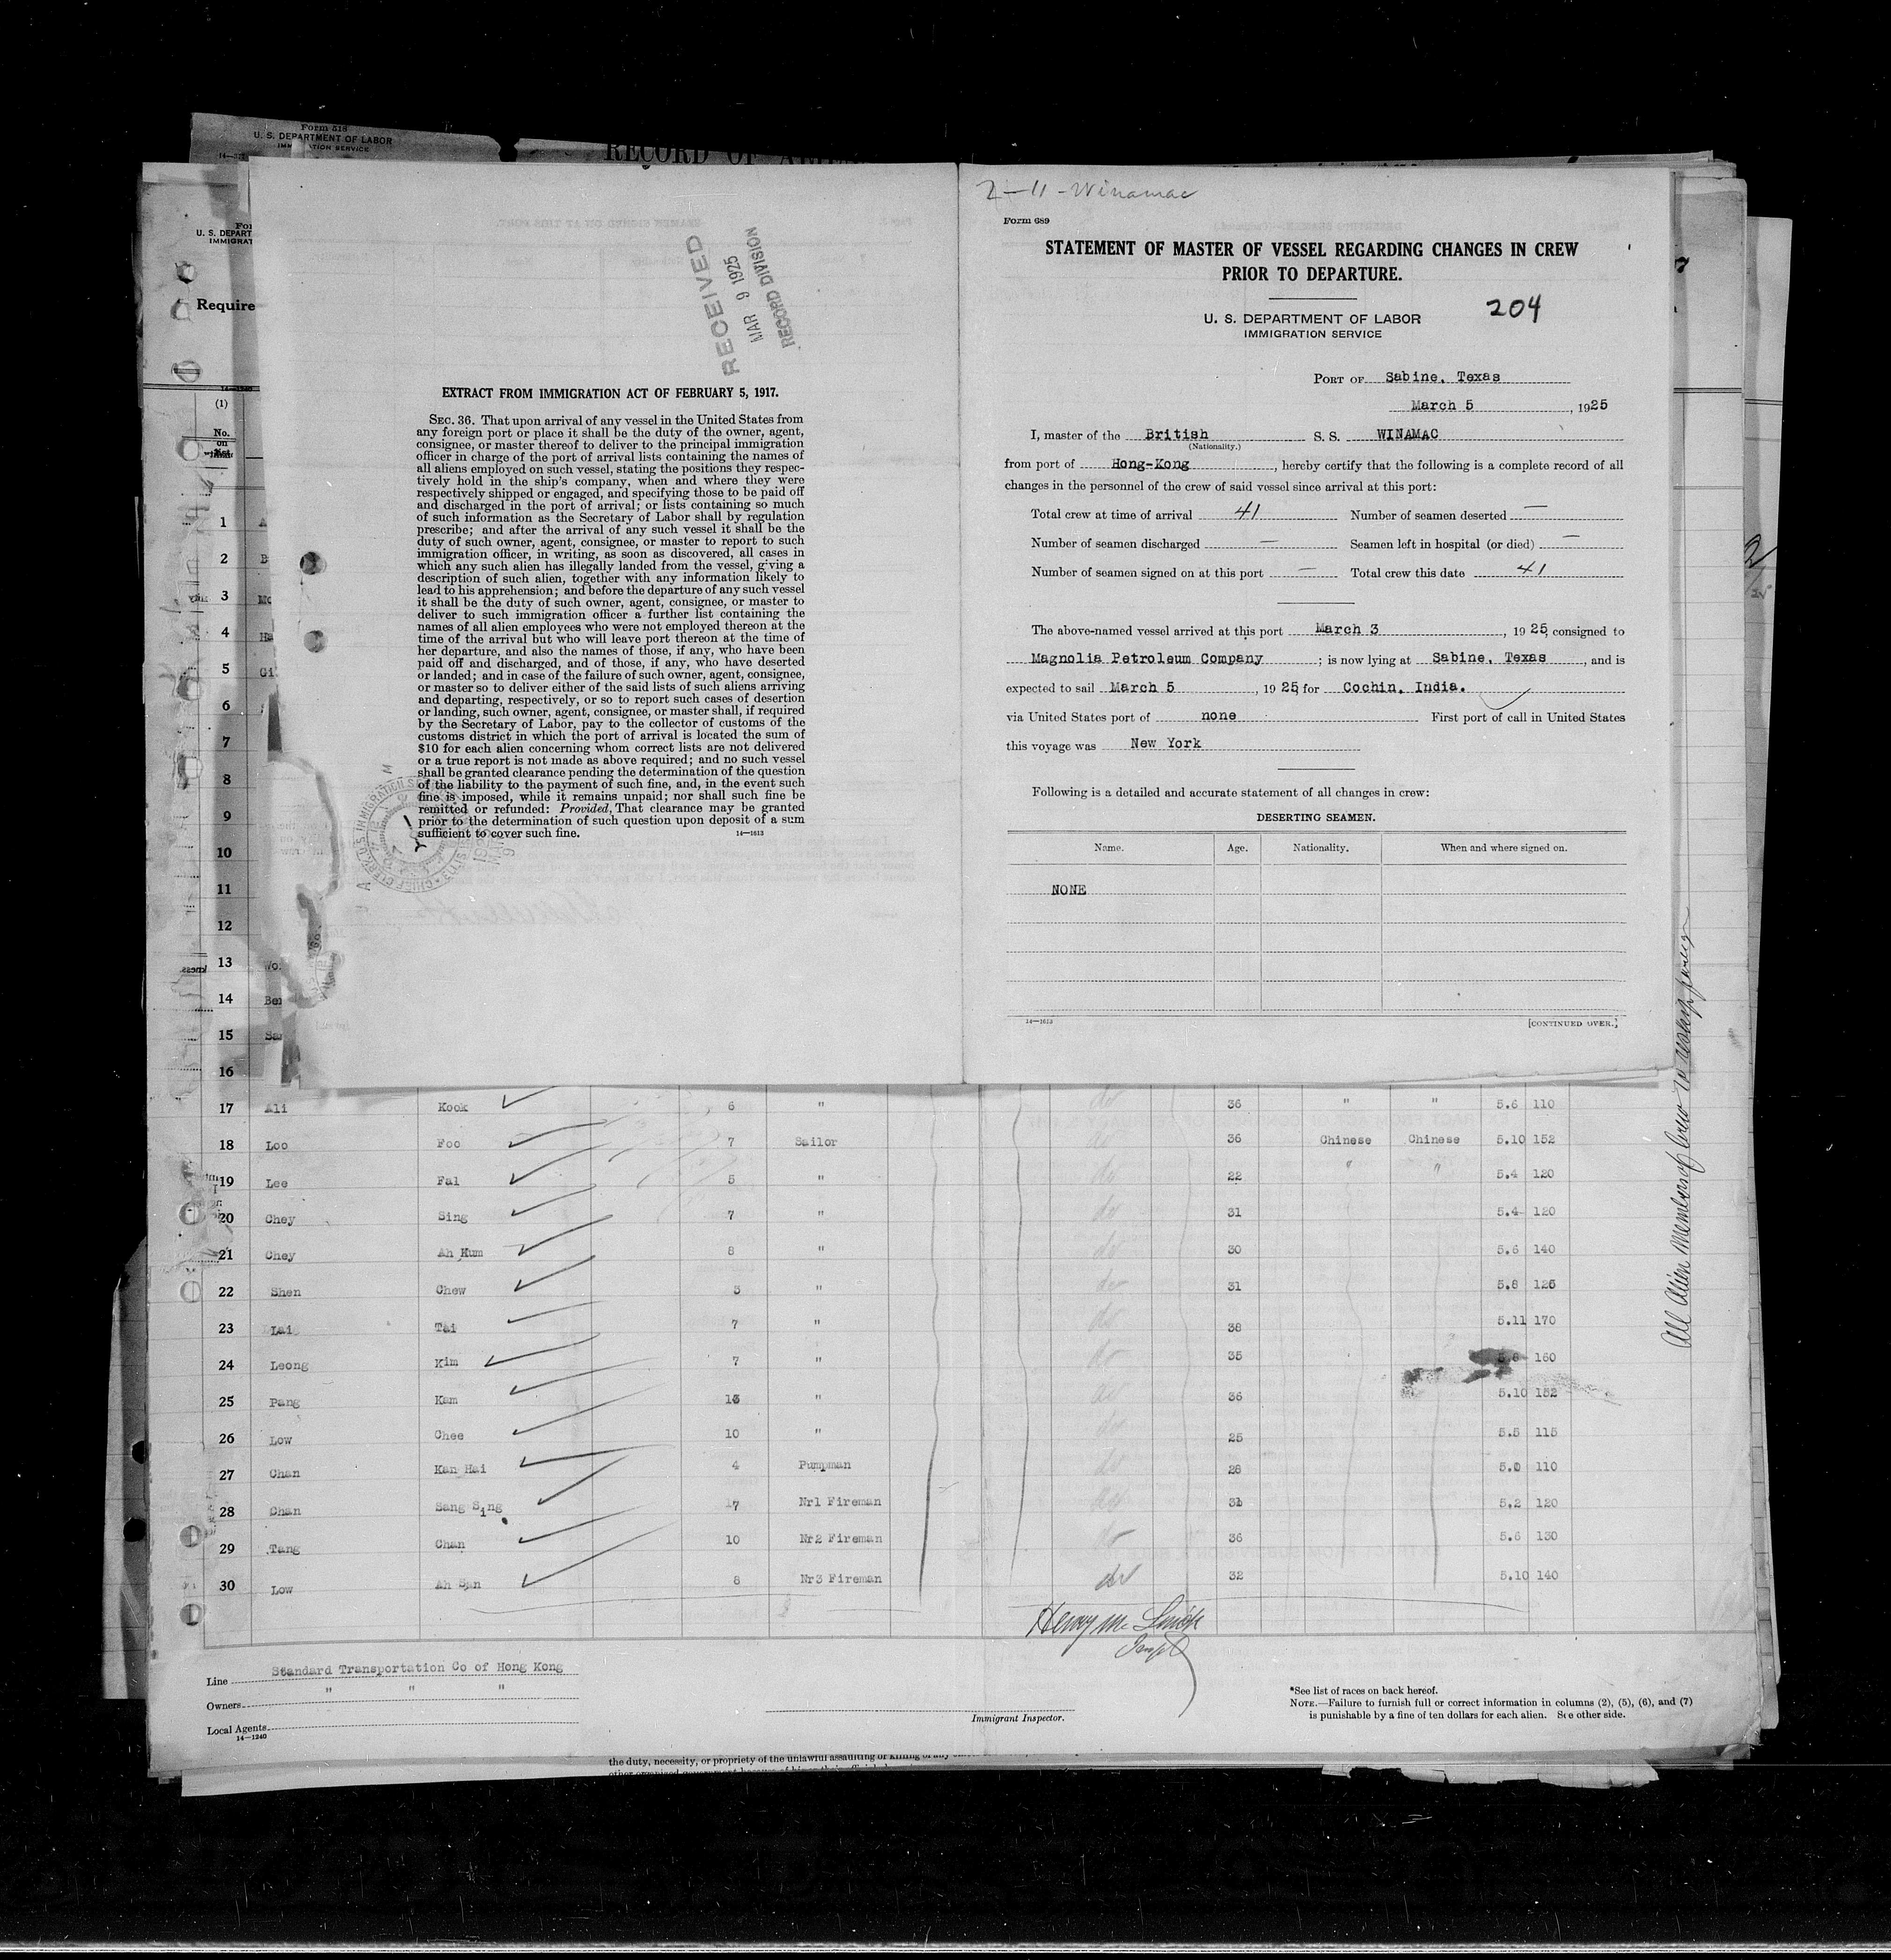 Form 518
U. S. DEPARTMENT OF LABOR
RECORD OF
U. S. DEPART
IMMIGRAT
Require
(1)
No.
on
1
2
3
4
5
6
7
8
9
10
11
12
13
14
15
16
RECEIVED
MAR 9 1925
RECORD DIVISION
EXTRACT FROM IMMIGRATION ACT OF FEBRUARY 5, 1917.
SEC. 36. That upon arrival of any vessel in the United States from
any foreign port or place it shall be the duty of the owner, agent,
consignee, or master thereof to deliver to the principal immigration
officer in charge of the port of arrival lists containing the names of
all aliens employed on such vessel, stating the positions they respec-
tively hold in the ship's company, when and where they were
respectively shipped or engaged, and specifying those to be paid off
and discharged in the port of arrival; or lists containing so much
of such information as the Secretary of Labor shall by regulation
prescribe; and after the arrival of any such vessel it shall be the
duty of such owner, agent, consignee, or master to report to such
immigration officer, in writing, as soon as discovered, all cases in
which any such alien has illegally landed from the vessel, giving a
description of such alien, together with any information likely to
lead to his apprehension; and before the departure of any such vessel
it shall be the duty of such owner, agent, consignee, or master to
deliver to such immigration officer a further list containing the
names of all alien employees who were not employed thereon at the
time of the arrival but who will leave port thereon at the time of
her departure, and also the names of those, if any, who have been
paid off and discharged, and of those, if any, who have deserted
or landed; and in case of the failure of such owner, agent, consignee,
or master so to deliver either of the said lists of such aliens arriving
and departing, respectively, or so to report such cases of desertion
or landing, such owner, agent, consignee, or master shall, if required
by the Secretary of Labor, pay to the collector of customs of the
customs district in which the port of arrival is located the sum of
$10 for each alien concerning whom correct lists are not delivered
or a true report is not made as above required; and no such vessel
shall be granted clearance pending the determination of the question
of the liability to the payment of such fine, and, in the event such
fine is imposed, while it remains unpaid; nor shall such fine be
remitted or refunded: Provided, That clearance may be granted
prior to the determination of such question upon deposit of a sum
sufficient to cover such fine. 14—1613
2-11-Winamac
Form 689
STATEMENT OF MASTER OF VESSEL REGARDING CHANGES IN CREW
PRIOR TO DEPARTURE.
204
U. S. DEPARTMENT OF LABOR
IMMIGRATION SERVICE
PORT OF Sabine, Texas
March 5, 1925
I, master of the British S. S. WINAMAC
(Nationality.)
from port of Hong-Kong, hereby certify that the following is a complete record of all
changes in the personnel of the crew of said vessel since arrival at this port:
Total crew at time of arrival 41 Number of seamen deserted —
Number of seamen discharged — Seamen left in hospital (or died) —
Number of seamen signed on at this port — Total crew this date 41
The above-named vessel arrived at this port March 3, 1925, consigned to
Magnolia Petroleum Company; is now lying at Sabine, Texas, and is
expected to sail March 5, 1925, for Cochin, India.
via United States port of none First port of call in United States
this voyage was New York
Following is a detailed and accurate statement of all changes in crew:
DESERTING SEAMEN.
Name. Age. Nationality. When and where signed on.
NONE
14—1613 [CONTINUED OVER.]
17 Ali Kook 6 " do 36 " " 5.6 110
18 Loo Foo 7 Sailor do 36 Chinese Chinese 5.10 152
19 Lee Fal 5 " do 22 " " 5.4 120
20 Chey Sing 7 " do 31 5.4 120
21 Chey Ah Kum 8 " do 30 5.6 140
22 Shen Chew " do 31 5.8
23 Lai Tai 7 " do 38 5.11 170
24 Leong Kim 7 " do 35 160
25 Pang Kam " do 36 5.10 152
26 Low Chee 10 " do 25 5.5 115
27 Chan Kan Hai 4 Pumpman do 28 110
28 Chan Sang Sing 17 Nr1 Fireman do 31 5.2 120
29 Tang Chan 10 Nr2 Fireman do 36 5.6 130
30 Low Ah San 8 Nr3 Fireman do 32 5.10 140
All Alien members of Crew to reship foreign
Henry M. Smith
Inspt
Line Standard Transportation Co of Hong Kong
Owners " " "
Local Agents
14—1240
Immigrant Inspector.
*See list of races on back hereof.
NOTE.—Failure to furnish full or correct information in columns (2), (5), (6), and (7)
is punishable by a fine of ten dollars for each alien. See other side.
the duty, necessity, or propriety of the unlawful assaulting or killing of any